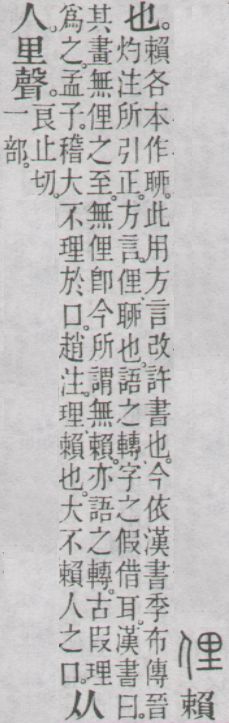 俚 賴
也。
賴各本作聊。此用方言改許書也。今依漢書季布傳晉
灼注所引正。方言。俚、聊也。語之轉、字之假借耳。漢書曰。
其畫無俚之至。無俚卽今所謂無賴。亦語之轉。古叚理
爲之。孟子。稽大不理於口。趙注。理、賴也。大不賴人之口。
从
人里聲。
良止切。
一部。